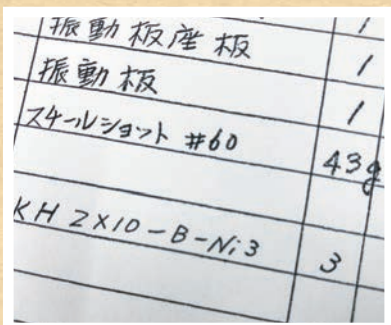 振動板座板 1
振動板 1
スチールショット #60 43g
KH 2×10-B-Ni3 3